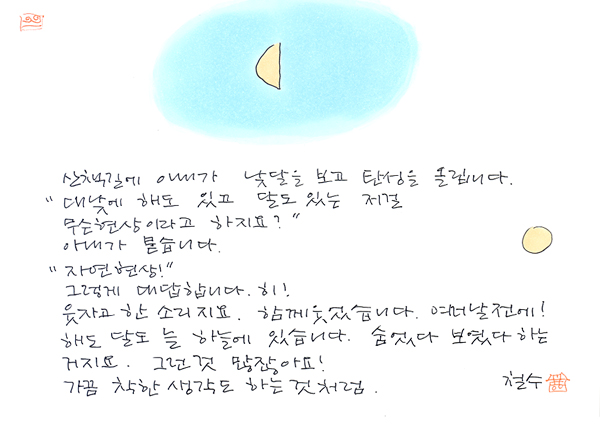 산책길에 아내가 낮달을 보고 탄성을 올립니다.
"대낮에 해도 있고 달도 있는 저걸
무슨현상이라고 하지요?"
아내가 묻습니다.
"자연현상!"
그렇게 대답합니다. 히!
웃자고 한 소리지요. 함께 웃었습니다. 여러날전에!
해도 달도 늘 하늘에 있습니다. 숨었다 보였다 하는
거지요. 그런것 많잖아요!
가끔 착한 생각도 하는것처럼.
철수